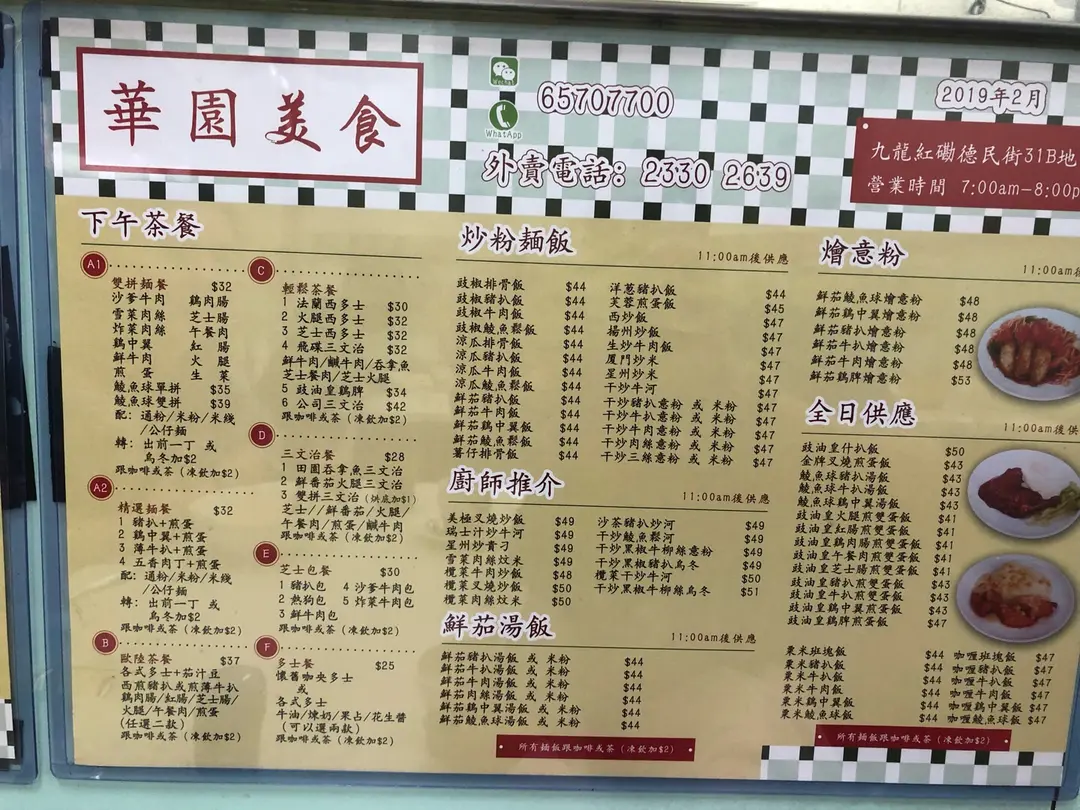 華園美食
Wechat
WhatApp
65707700
外賣電話: 2330 2639
2019年2月
九龍紅磡德民街31B地
營業時間 7:00am-8:00p
下午茶餐
A1
雙拼麵餐 $32
沙爹牛肉 鷄肉腸
雪菜肉絲 芝士腸
炸菜肉絲 午餐肉
鷄中翼 紅腸
鮮牛肉 火腿
煎蛋 生菜
鯪魚球單拼 $35
鯪魚球雙拼 $39
配: 通粉/米粉/米綫
/公仔麵
轉: 出前一丁 或
烏冬加$2
跟咖啡或茶 (凍飲加$2)
A2
精選麵餐 $32
1 豬扒+煎蛋
2 鷄中翼+煎蛋
3 薄牛扒+煎蛋
4 五香肉丁+煎蛋
配: 通粉/米粉/米綫
/公仔麵
轉: 出前一丁 或
烏冬加$2
跟咖啡或茶 (凍飲加$2)
B
歐陸茶餐 $37
各式多士+茄汁豆
西煎豬扒或煎薄牛扒
鷄肉腸/紅腸/芝士腸/
火腿/午餐肉/煎蛋
(任選二款)
跟咖啡或茶 (凍飲加$2)
C
輕鬆茶餐
1 法蘭西多士 $30
2 火腿西多士 $32
3 芝士西多士 $32
4 飛碟三文治 $32
鮮牛肉/鹹牛肉/吞拿魚
芝士餐肉/芝士火腿
5 豉油皇鷄髀 $34
6 公司三文治 $42
跟咖啡或茶 (凍飲加$2)
D
三文治餐 $28
1 田園吞拿魚三文治
2 鮮番茄火腿三文治
3 雙拼三文治 (烘底加$1)
芝士//鮮番茄/火腿/
午餐肉/煎蛋/鹹牛肉
跟咖啡或茶 (凍飲加$2)
E
芝士包餐 $30
1 豬扒包 4 沙爹牛肉包
2 熱狗包 5 炸菜牛肉包
3 鮮牛肉包
跟咖啡或茶 (凍飲加$2)
F
多士餐 $25
懷舊咖央多士
或
各式多士
牛油/煉奶/果占/花生醬
(可以選兩款)
跟咖啡或茶 (凍飲加$2)
炒粉麵飯
11:00am後供應
豉椒排骨飯 $44
豉椒豬扒飯 $44
豉椒牛肉飯 $44
豉椒鯪魚鬆飯 $44
涼瓜排骨飯 $44
涼瓜豬扒飯 $44
涼瓜牛肉飯 $44
涼瓜鯪魚鬆飯 $44
鮮茄豬扒飯 $44
鮮茄牛肉飯 $44
鮮茄鷄中翼飯 $44
鮮茄鯪魚鬆飯 $44
薯仔排骨飯 $44
洋葱豬扒飯 $44
芙蓉煎蛋飯 $45
西炒飯 $47
揚州炒飯 $47
生炒牛肉飯 $47
廈門炒米 $47
星州炒米 $47
干炒牛河 $47
干炒豬扒意粉 或 米粉 $47
干炒牛扒意粉 或 米粉 $47
干炒牛肉意粉 或 米粉 $47
干炒肉絲意粉 或 米粉 $47
干炒三絲意粉 或 米粉 $47
廚師推介
11:00am後供應
美極叉燒炒飯 $49
瑞士汁炒牛河 $49
星州炒貴刁 $49
雪菜肉絲炆米 $49
欖菜牛肉炒飯 $48
欖菜叉燒炒飯 $50
欖菜肉絲炆米 $50
沙茶豬扒炒河 $49
干炒鯪鬆河 $49
干炒黑椒牛柳絲意粉 $49
干炒黑椒豬扒烏冬 $49
欖菜干炒牛河 $50
干炒黑椒牛柳絲烏冬 $51
鮮茄湯飯
11:00am後供應
鮮茄豬扒湯飯 或 米粉 $44
鮮茄牛扒湯飯 或 米粉 $44
鮮茄牛肉湯飯 或 米粉 $44
鮮茄肉絲湯飯 或 米粉 $44
鮮茄鷄中翼湯飯 或 米粉 $44
鮮茄鯪魚球湯飯 或 米粉 $44
所有麵飯跟咖啡或茶 (凍飲加$2)
燴意粉
11:00am後
鮮茄鯪魚球燴意粉 $48
鮮茄鷄中翼燴意粉 $48
鮮茄豬扒燴意粉 $48
鮮茄牛扒燴意粉 $48
鮮茄牛肉燴意粉 $48
鮮茄鷄髀燴意粉 $53
全日供應
11:00am後供
豉油皇什扒飯 $50
金牌叉燒煎蛋飯 $43
鯪魚球豬扒湯飯 $43
鯪魚球牛扒湯飯 $43
鯪魚球鷄中翼湯飯 $43
豉油皇火腿煎雙蛋飯 $41
豉油皇紅腸煎雙蛋飯 $41
豉油皇鷄肉腸煎雙蛋飯 $41
豉油皇午餐肉煎雙蛋飯 $41
豉油皇芝士腸煎雙蛋飯 $41
豉油皇豬扒煎雙蛋飯 $43
豉油皇牛扒煎雙蛋飯 $43
豉油皇鷄中翼煎蛋飯 $43
豉油皇鷄髀煎蛋飯 $47
粟米班塊飯 $44 咖喱班塊飯 $47
粟米豬扒飯 $44 咖喱豬扒飯 $47
粟米牛扒飯 $44 咖喱牛扒飯 $47
粟米牛肉飯 $44 咖喱牛肉飯 $47
粟米鷄中翼飯 $44 咖喱鷄中翼飯 $47
粟米鯪魚球飯 $44 咖喱鯪魚球飯 $47
所有麵飯跟咖啡或茶 (凍飲加$2)